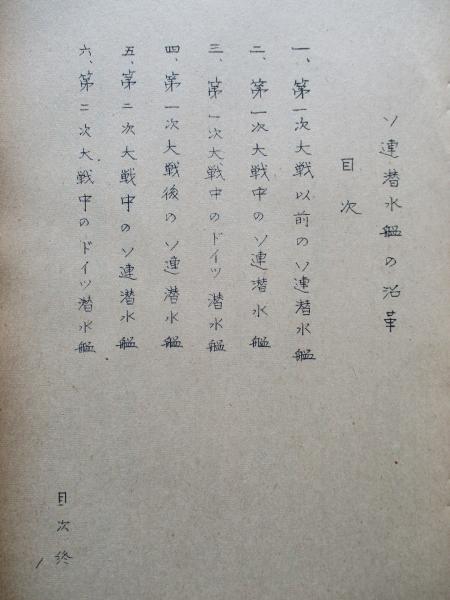 ソ連潜水艦の沿革
目次
一、第一次大戦以前のソ連潜水艦
二、第一次大戦中のソ連潜水艦
三、第一次大戦中のドイツ潜水艦
四、第一次大戦後のソ連潜水艦
五、第二次大戦中のソ連潜水艦
六、第二次大戦中のドイツ潜水艦
目次終